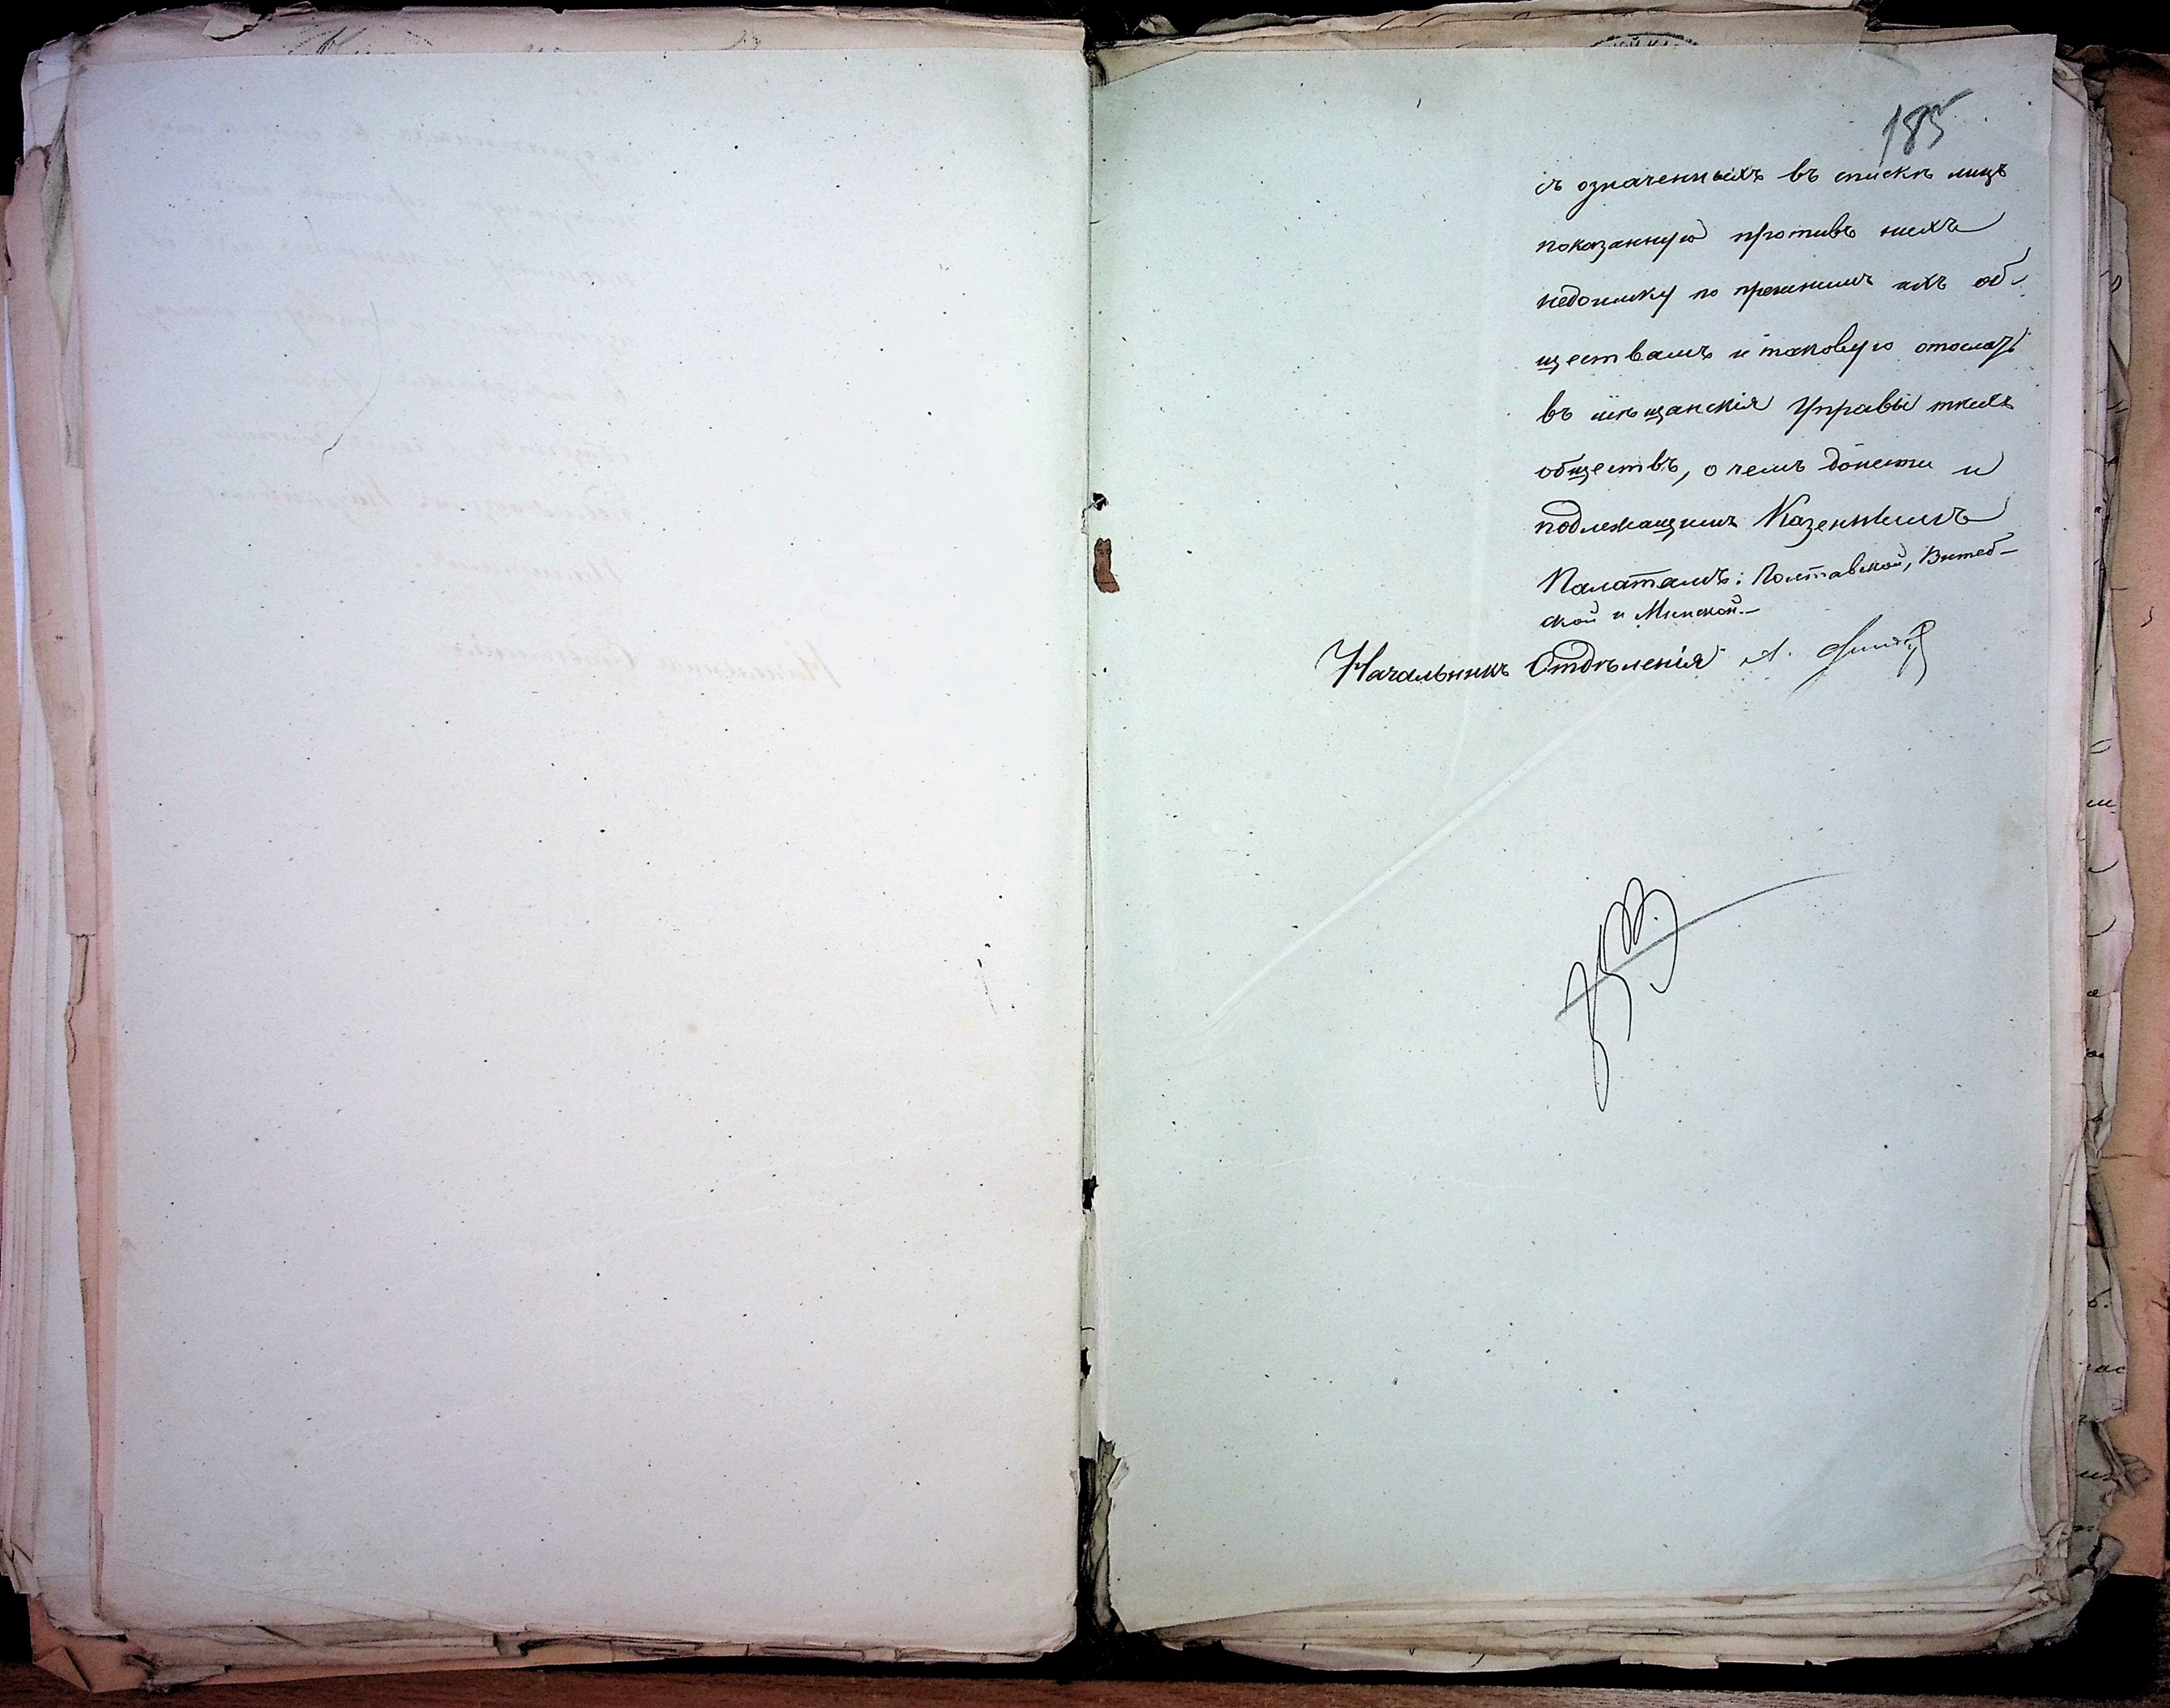 185
съ означенныхъ въ спискѣ лицъ
показанную противъ нихъ
недоимку по прежнимъ ихъ об-
ществамъ и таковую отослать
въ мѣщанскія Управы тѣхъ
обществъ, о чемъ донести и
подлежащимъ Казеннымъ
Палатамъ: Полтавской, Витеб-
ской и Минской.—
Начальникъ Отдѣленія А.